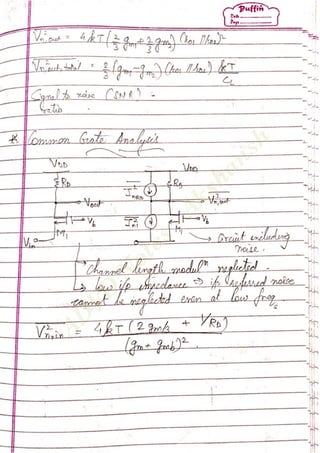 Puffin
Date
Page
V²n,out = 4kT (2/3 gm1 + 2/3 gm2) (ro1 || ro2)²
V²n,out,total = 2/3 (gm1 - gm2) (ro1 || ro2) kT/CL
Signal to noise (SNR) =
ratio
* Common Gate Analysis
VDD VDD
RD I²nRD RD
Vout V²n,out
Vb I²n1 Vb
M1 M1
Vin
Circuit including
noise.
Channel length modulⁿ neglected.
low i/p impedance ⇒ i/p referred noise
cannot be neglected even at low freq
V²n,in = 4kT (2gm/3 + 1/RD) / (gm + gmb)²